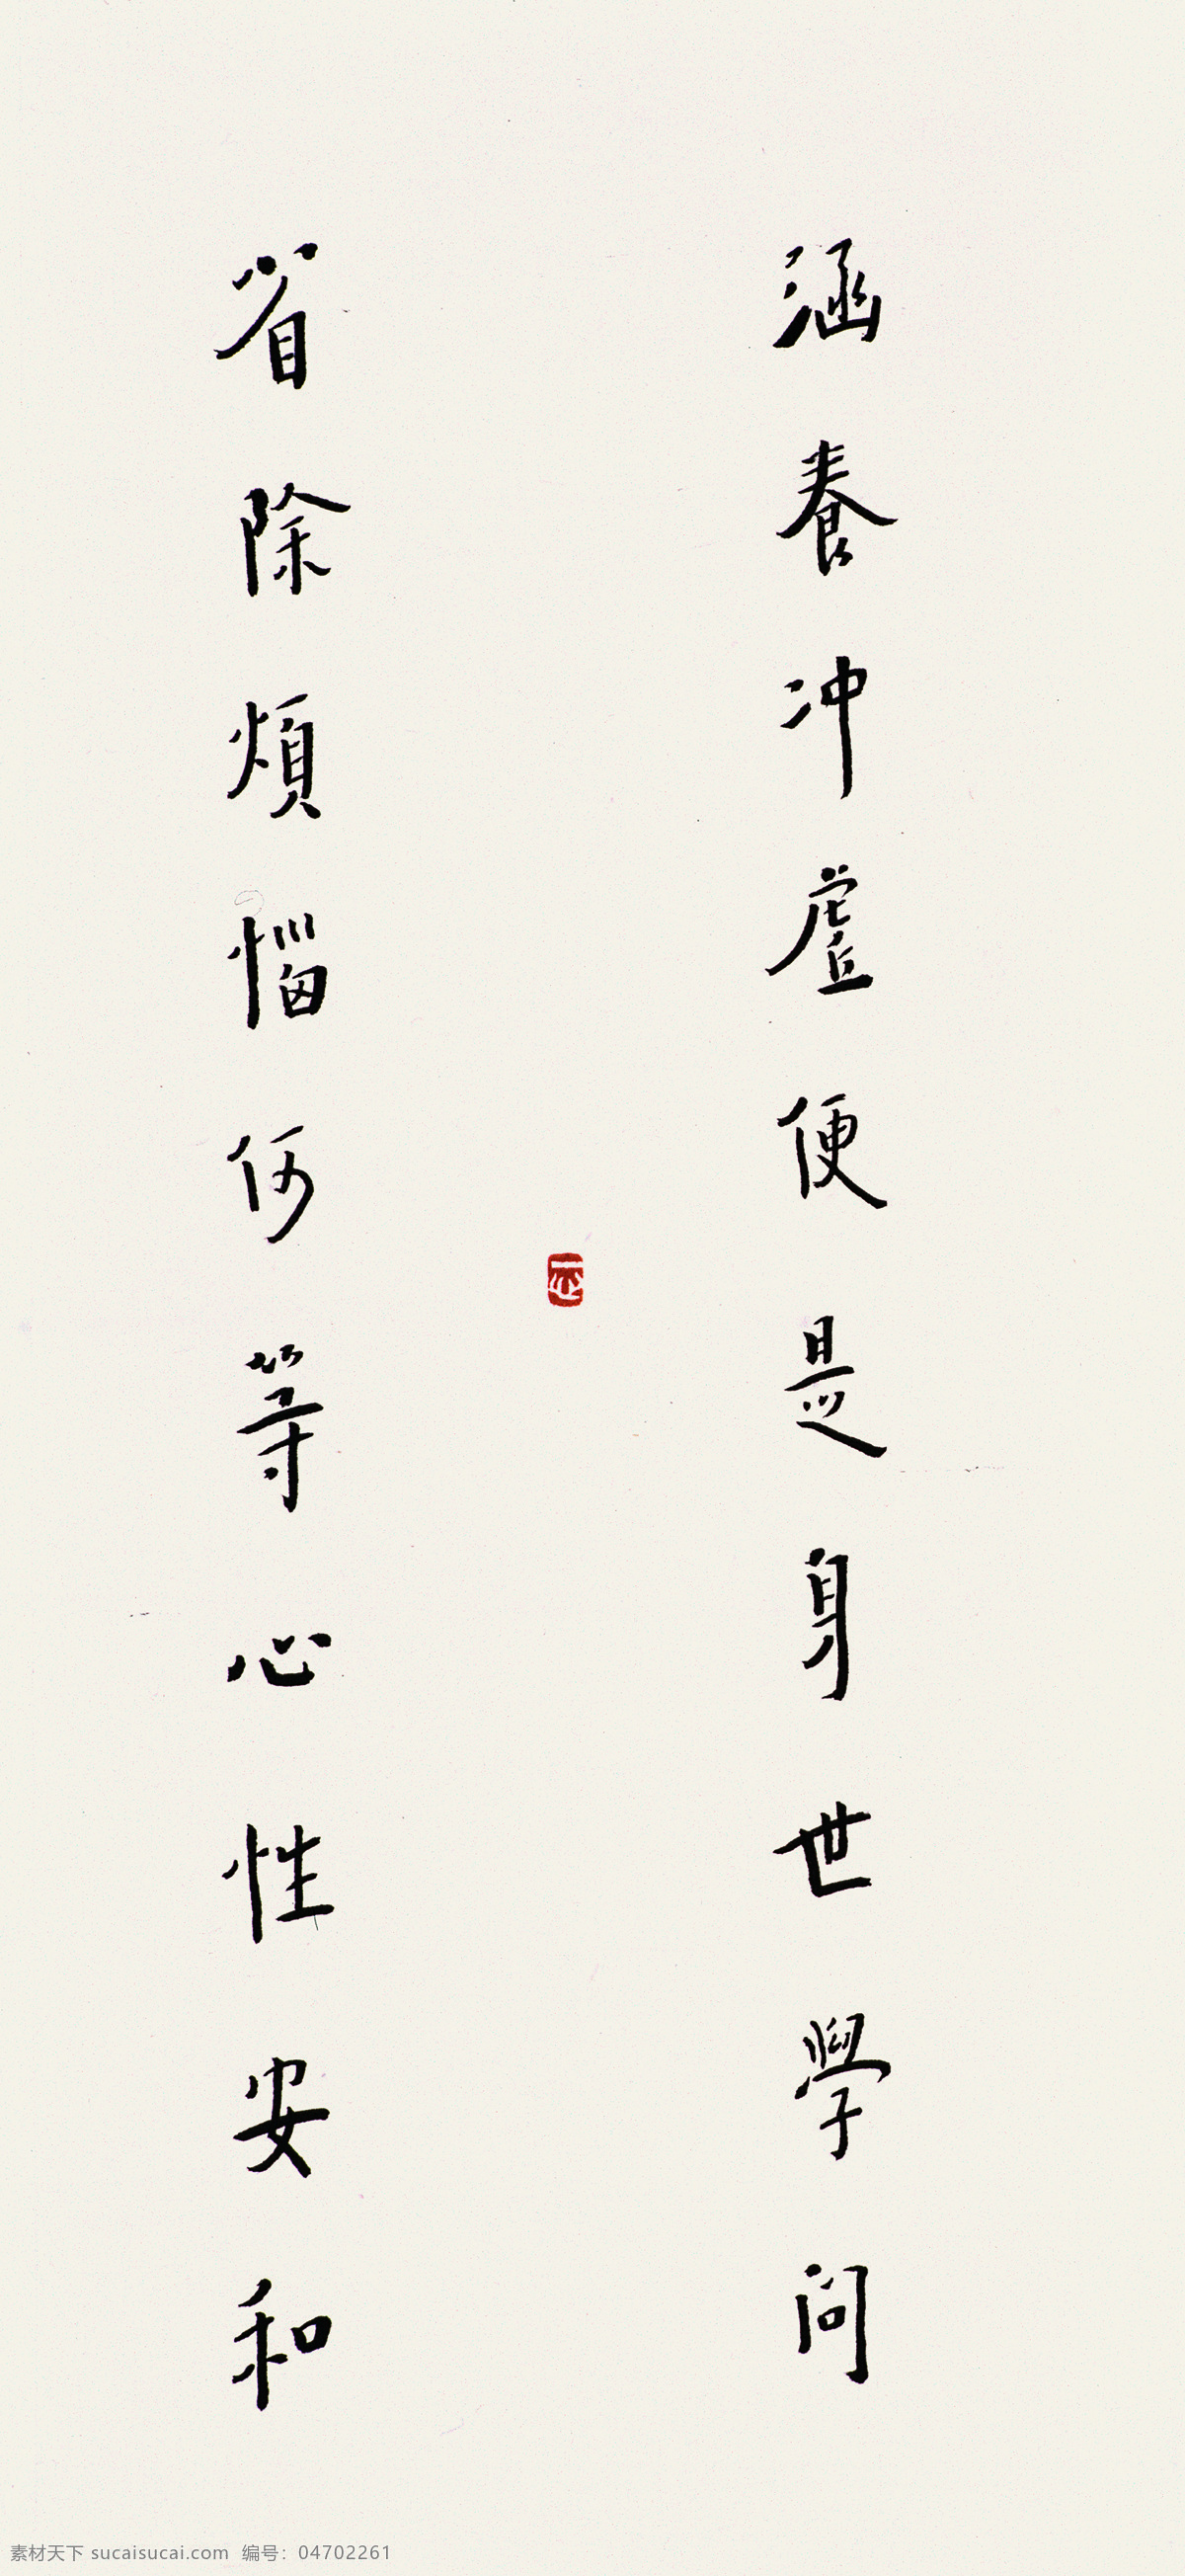 涵養冲虛便是身世學問
省除煩惱何等心性安和
素材天下 sucaisucai.com 编号：04702261